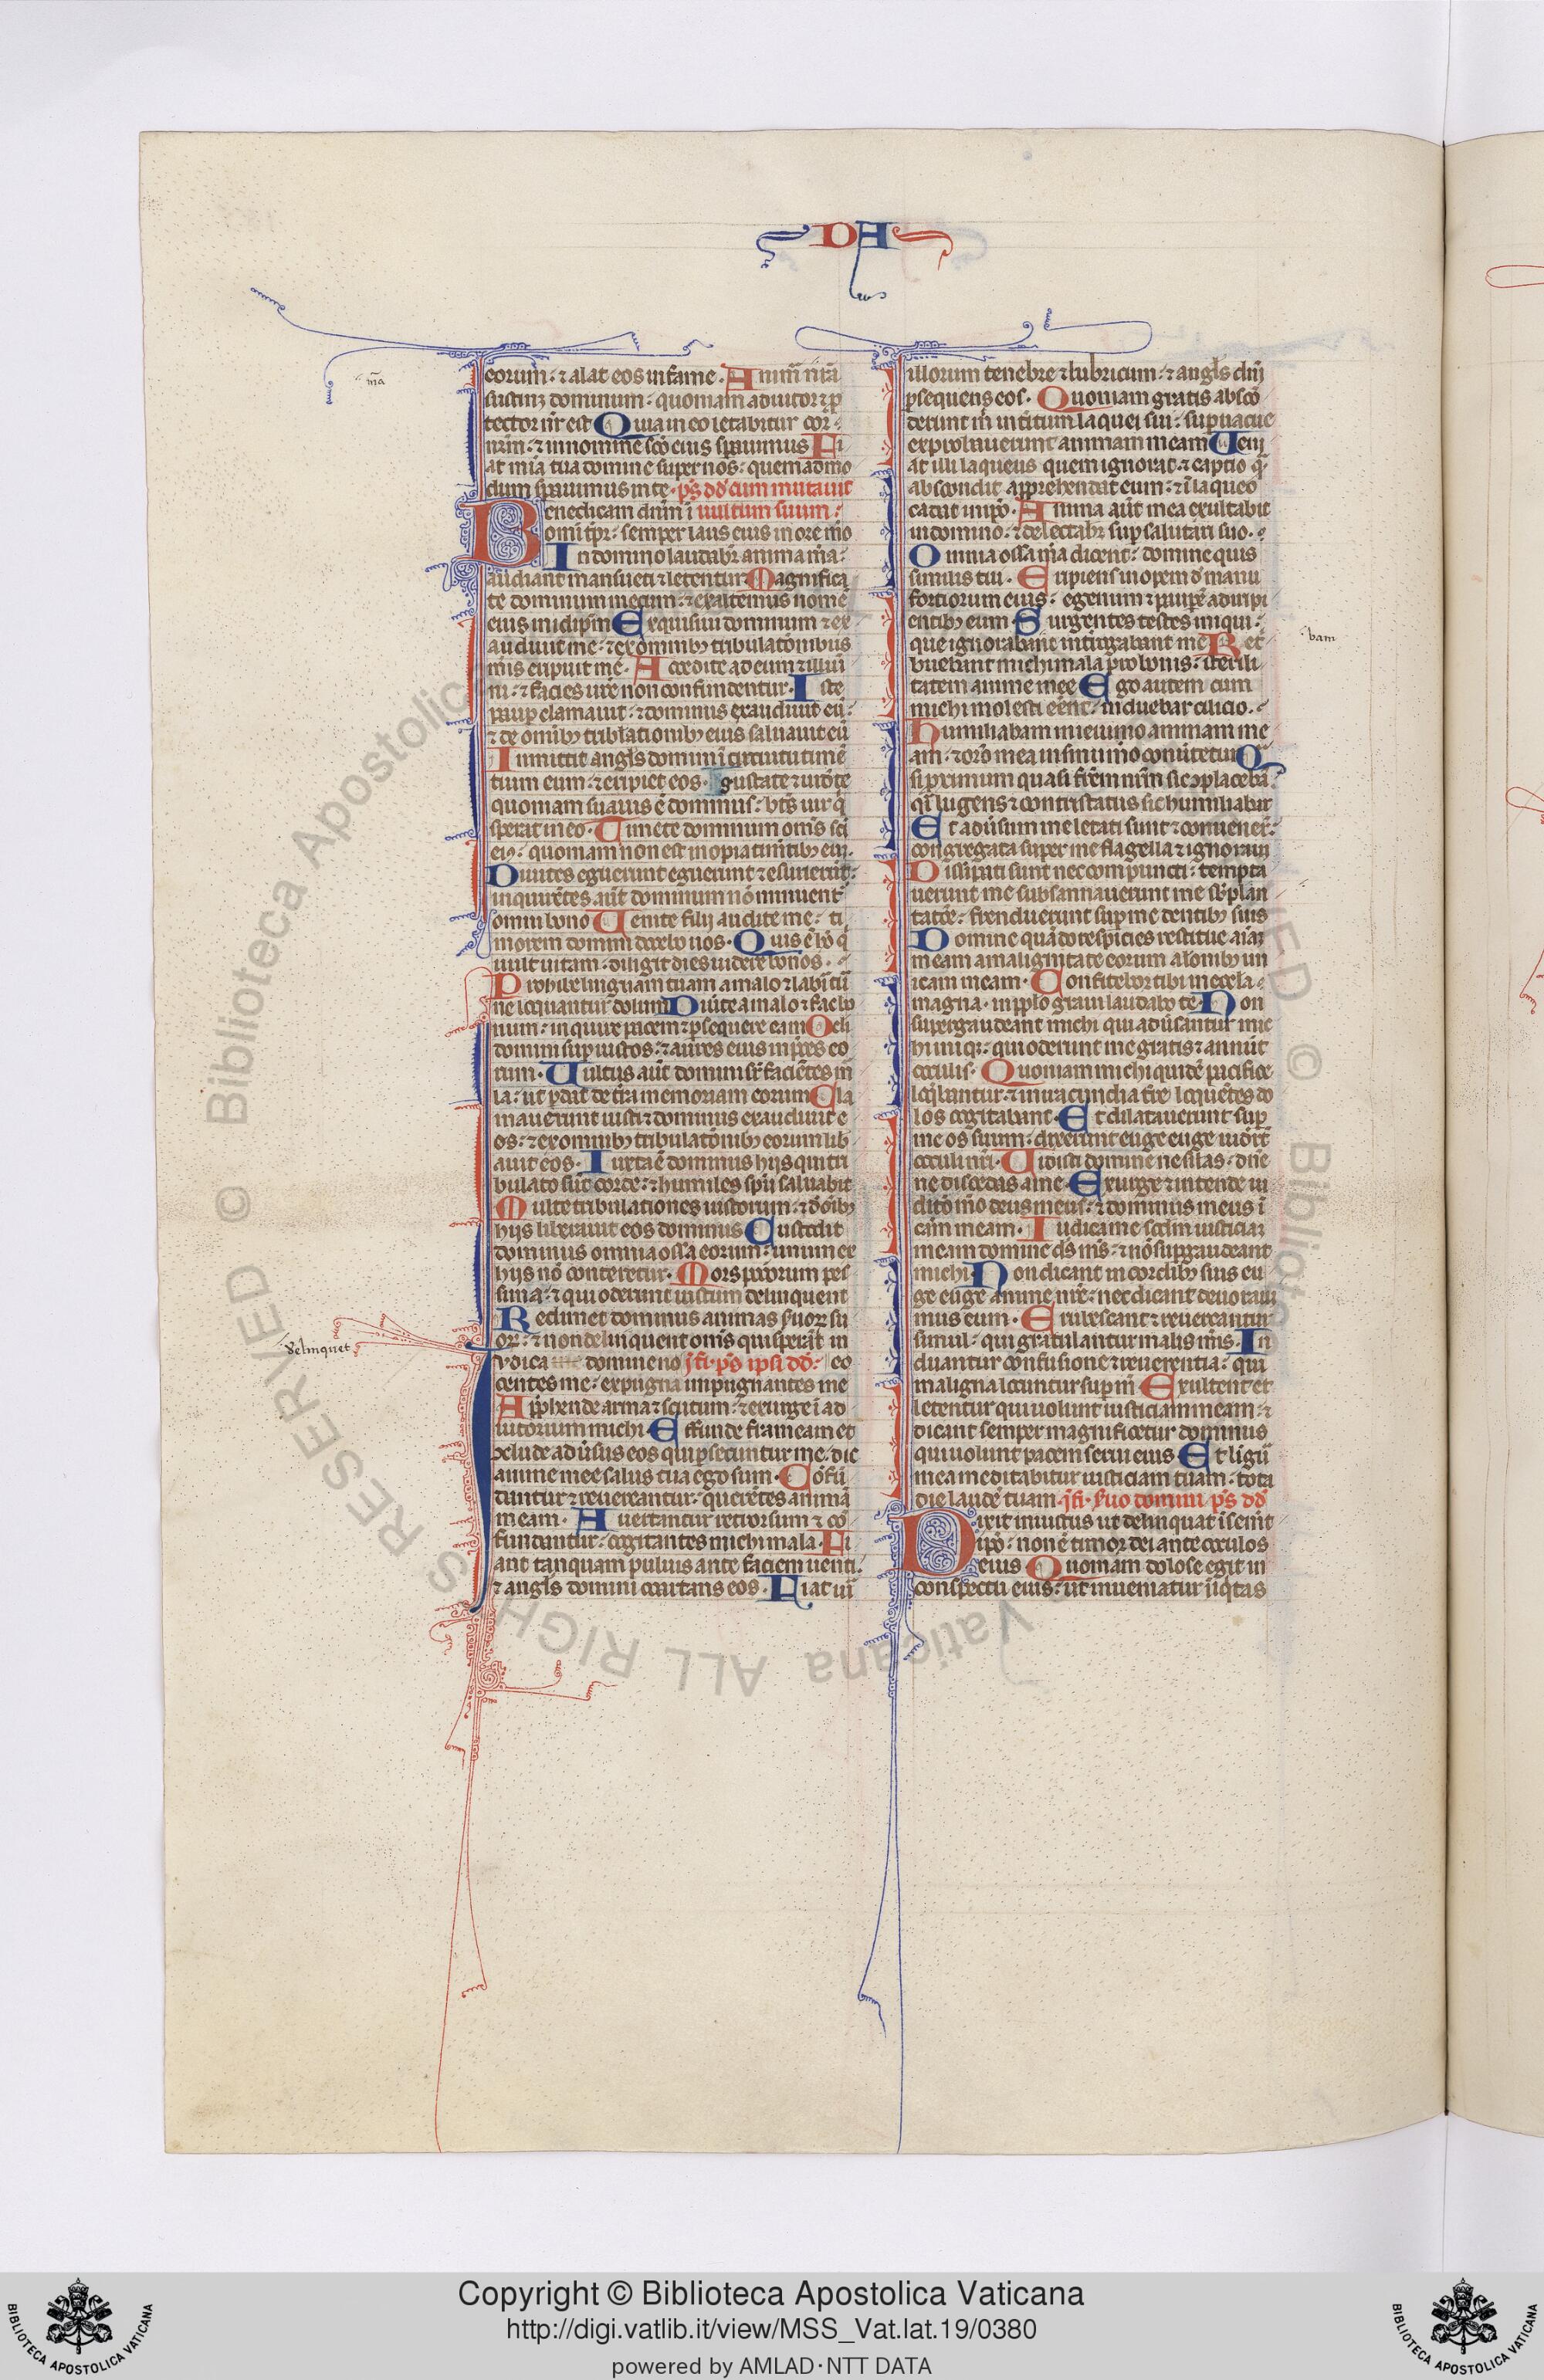 DA
eorum: ⁊ alat eos in fame. Anima nr̄a
sustinꝫ dominum: quoniam adiutor ⁊ ꝓ
tector nr̄ est Quia in eo letabitur cor
nr̄m: ⁊ in nomine scō eius sperauimus Fi
at mīa tua domine super nos: quemadmo
dum sperauimus in te. ps̄ dd̄ cum mutauit
Benedicam dn̄m ī uultum suum:
omī tp̄r: semper laus eius in ore meo
In domino laudabr̄ anima mēa:
audiant mansueti ⁊ letentur Magnifica
te dominum mecum: ⁊ exaltemus nomē
eius in idip̄m Exquisiui dominum ⁊ ex
audiuit me: ⁊ ex omnibꝫ tribulatōnibus
mēis eripuit me. Accedite ad eum ⁊ illuī
ni: ⁊ facies ur̄e non confundentur. Iste
paup̄ clamauit: ⁊ dominus exaudiuit eū:
⁊ de omībꝫ tribl̄ationibꝫ eius saluauit eū
Inmittit angl̄s domini ī circuitu timē
tium eum: ⁊ eripiet eos. gustate ⁊ uidete
quoniam suauis ē dominus: bt̄s uir q̄
sperat in eo. Timete dominum om̄s sc̄i
eiꝰ: quoniam non est inopia timētibꝫ eū.
Diuites eguerunt eguerunt ⁊ esurierūt:
inquirētes aūt dominum nō minuent
omni bono Uenite filij audite me: ti
morem domini docebo uos. Quis ē hō q̄
uult uitam: diligit dies uidere bonos.
Prohibe linguam tuam a malo ⁊ labīa tu
ne loquantur dolum Diūte a malo ⁊ fac bo
num: inquire pacem ⁊ ꝑsequere eam Oculi
domini sup̄ iustos: ⁊ aures eius in p̄ces eo
rum. Uultus aūt domini sr̄ faciētes m̄
la: ut ꝑdat de tr̄a memoriam eorum Cla
mauerunt iusti ⁊ dominus exaudiuit e
os: ⁊ ex omnibꝫ tribulatōnibꝫ eorum lib̄
auit eos. Iuxta ē dominus hijs qui tri
bulato sūt corde: ⁊ humiles spū saluabit
Multe tribulationes iustorum: ⁊ d̄ oīibꝫ
hijs liberauit eos dominus Custodit
dominus omnia ossa eorum: unum ex
hijs nō conteretur. Mors pcc̄orum pes
sima: ⁊ qui oderunt iustum delinquent
Redimet dominus animas suoꝝ su
oꝝ: ⁊ non delinquent om̄s qui sperāt in
Iudica domine no ī fī. ps̄ ipsi dd̄: eo
centes me: expugna impugnantes me
Apprehende arma ⁊ scutum: ⁊ exurge ī ad
iutorium michi Effunde frameam et
cōclude adūsus eos qui ꝑsecuntur me. dic
anime mee salus tua ego sum. Cōfū
dantur ⁊ reuereantur: querētes animā
meam. Auertantur retrorsum ⁊ cō
fundantur: cogitantes michi mala. Fi
ant tanquam puluis ante faciem uenti.
⁊ angl̄s domini coartans eos. Fiat uī
mēa
delinquet
illorum tenebre ⁊ lubricum: ⁊ angl̄s dn̄i
ꝑsequens eos. Quoniam gratis abscō
derunt m̄ interitum laquei sui: sup̄uacue
exprobrauerunt animam meam Ueni
at illi laqueus quem ignorat: ⁊ captio q̄
abscondit apprehendat eum: ⁊ ī laqueo
cadat in ip̄o. Anima aūt mea exultabit
in domino: ⁊ delectabr̄ sup̄ salutari suo.
Omnia ossa mēa dicent: domine quis
similis tui. Eripiens inopem d̄ manu
fortiorum eius: egenum ⁊ paupē a diripi
entibꝫ eum Surgentes testes iniqui:
que ignorabane interrogabant me Ret
buebant michi mala pro bonis: sterili
tatem anime mee Ego autem cum
michi molesti eēnt: induebar cilicio.
Humiliabam in ieiunio animam me
am: ⁊ orō mea in sinu mō conūtetur Q
si proximum quasi frēm nr̄m sic ꝯplacebā
qī lugens ⁊ contristatus sic humiliabar
Et adūsum me letati sunt ⁊ conuener̄:
congregata super me flagella ⁊ ignoraui
Dissipati sunt nec compuncti: tempta
uerunt me subsannauerunt me sb̄ plan
tatōe: frenduerunt sup̄ me dentibꝫ suis
Domine quādo respicies restitue aīaꝫ
meam a malignitate eorum a leonibꝫ un
icam meam. Confitebor tibi in eccl̄a
magna: in ppl̄o graui laudabo te. Non
supergaudeant michi qui adūsantur mic
hi iniqꝫ: qui oderunt me gratis ⁊ annuūt
oculis. Quoniam michi quidē pacifice
loq̄bantur: ⁊ in iracundia tr̄e loquētes do
los cogitabant. Et dilatauerunt sup̄
me os suum: dixerunt euge euge uider̄t
oculi nr̄i. Uidisti domine ne sileas: dn̄e
ne discedas a me. Exurge ⁊ intende iu
ditō mō deus meus: ⁊ dominus meus ī
cām meam. Iudica me scdm̄ iusticiaꝫ
meam domine ds̄ ms̄: ⁊ nō sup̄gaudeant
michi Non dicant in cordibꝫ suis eu
ge euge anime nr̄e: nec dicant deuoraui
mus eum. Erubescant ⁊ reuereantur
simul: qui gratulantur malis mēis. In
duantur confusione ⁊ reuerentia: qui
maligna locuntur sup̄ m̄ Exultent et
letentur qui uolunt iusticiam meam: ⁊
dicant semper magnificetur dominus
qui uolunt pacem serui eius Et ligū
mea meditabitur iusticiam tuam: tota
die laudē tuam. ī fī. s̄uo domini ps̄ dd̄
Dixit iniustus ut delinquat ī semt̄
ip̄o: non ē timor dei ante oculos
eius Quoniam dolose egit in
conspectu eius: ut inueniatur iiq̄tas
bam
© Biblioteca Apostolica Vaticana ALL RIGHTS RESERVED
Copyright © Biblioteca Apostolica Vaticana
http://digi.vatlib.it/view/MSS_Vat.lat.19/0380
powered by AMLAD·NTT DATA
BIBLIOTECA APOSTOLICA VATICANA
BIBLIOTECA APOSTOLICA VATICANA